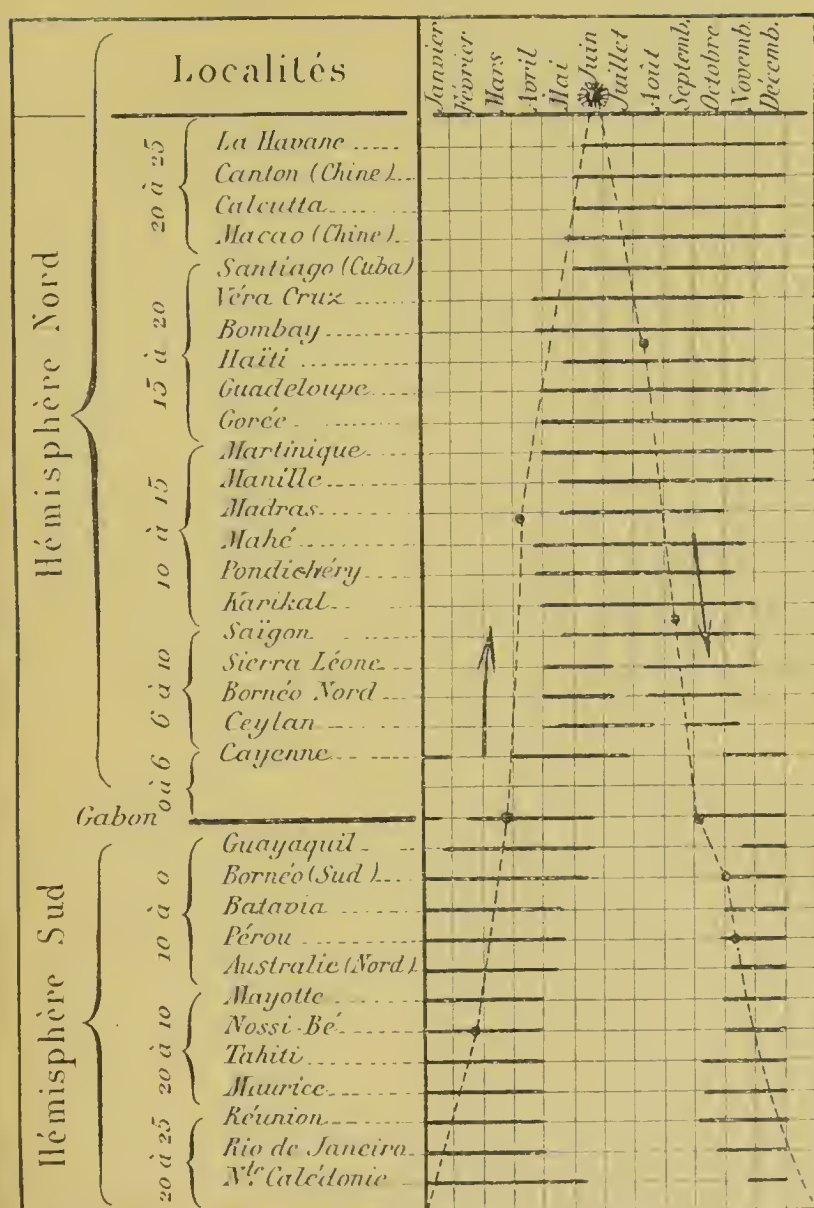 Localités
Janvier
Février
Mars
Avril
Mai
Juin
Juillet
Août
Septemb.
Octobre
Novemb.
Décemb.
Hémisphère Nord
20 à 25
La Havane
Canton (Chine)
Calcutta
Macao (Chine)
15 à 20
Santiago (Cuba)
Véra Cruz
Bombay
Haïti
Guadeloupe
Gorée
10 à 15
Martinique
Manille
Madras
Mahé
Pondichéry
Karikal
6 à 10
Saïgon
Sierra Léone
Bornéo Nord
Ceylan
0 à 6
Cayenne
Gabon
Hémisphère Sud
10 à 0
Guayaquil
Bornéo (Sud)
Batavia
Pérou
Australie (Nord)
20 à 10
Mayotte
Nossi-Bé
Tahiti
Maurice
20 à 25
Réunion
Rio de Janeiro
Nlle Calédonie